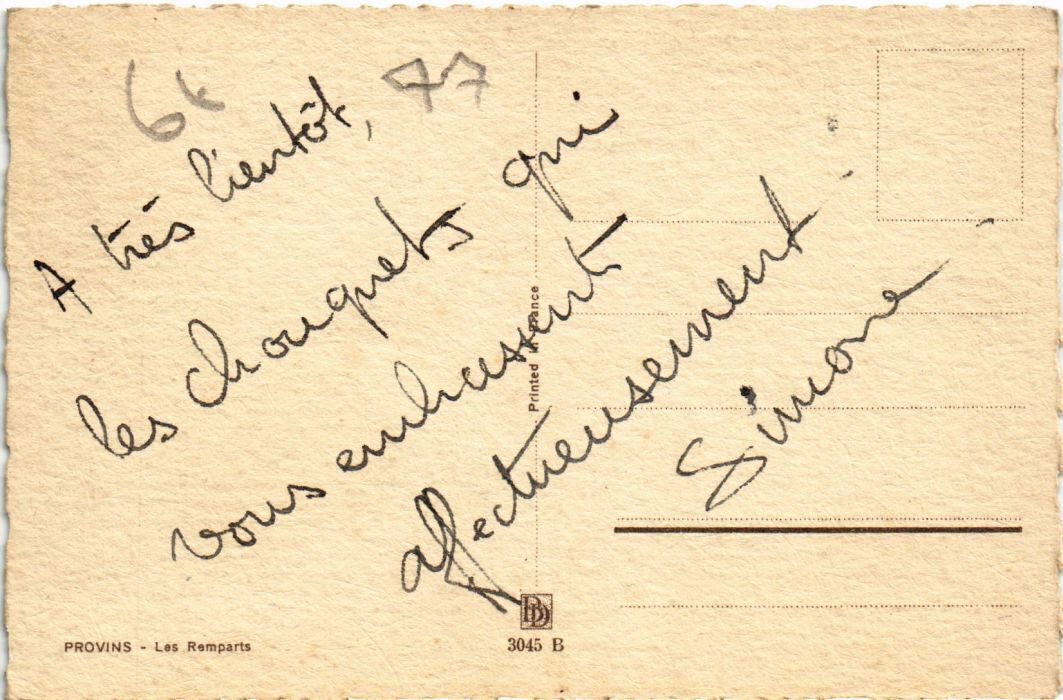 6k 77
A très bientôt,
les chouquets qui
vous embrassent
affectueusement.
Simone
Printed in France
PROVINS - Les Remparts
BD
3045 B